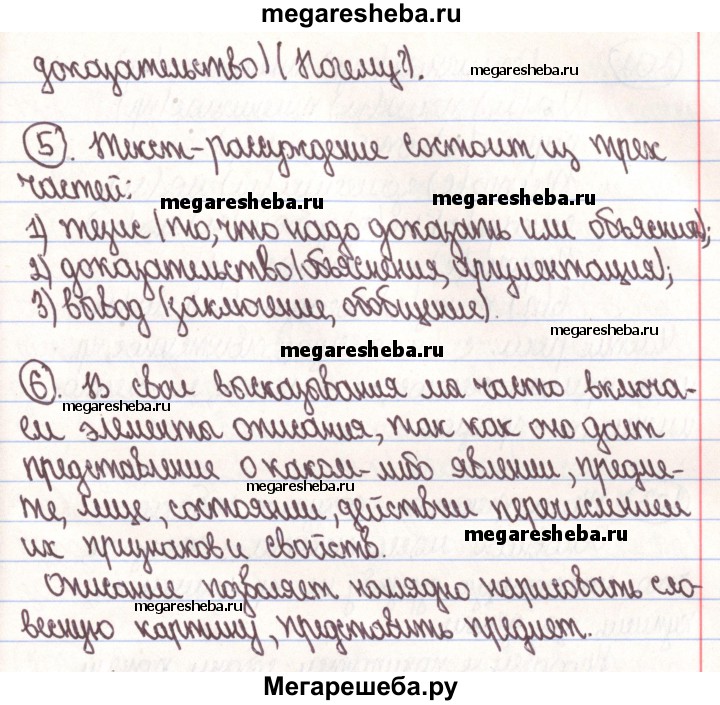 megaresheba.ru
доказательство) (Почему?).
megaresheba.ru
5. Текст-рассуждение состоит из трех
частей:
megaresheba.ru
megaresheba.ru
1) тезис (то, что надо доказать или объяснить);
2) доказательство (объяснения, аргументация);
3) вывод (заключение, обобщение).
megaresheba.ru
megaresheba.ru
6. В свои высказывания мы часто включа-
megaresheba.ru
ем элементы описания, так как оно дает
представление о каком-либо явлении, предме-
megaresheba.ru
те, лице, состоянии, действии перечислением
их признаков и свойств.
megaresheba.ru
Описание позволяет наглядно нарисовать сло-
megaresheba.ru
весную картину, представить предмет.
Мегарешеба.ру